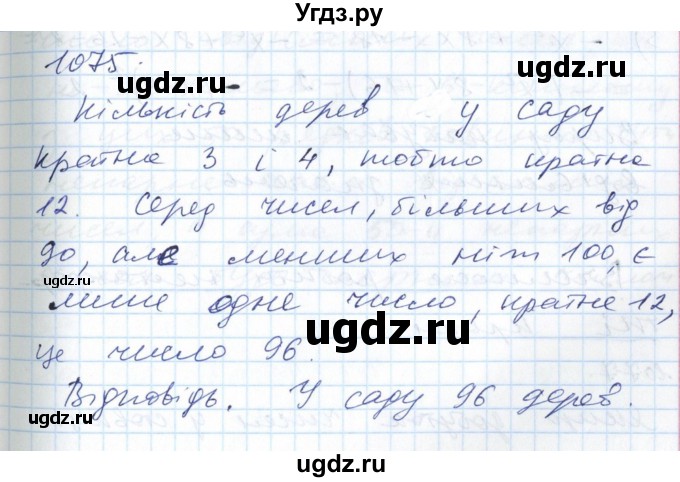 Угдз.ру
1075.
Кількість дерев у саду
кратна 3 і 4, тобто кратна
12. Серед чисел, більших від
90, але менших ніж 100, є
лише одне число, кратне 12,
це число 96.
Відповідь. У саду 96 дерев.
ugdz.ru
ugdz.ru
ugdz.ru
ugdz.ru
ugdz.ru
ugdz.ru
ugdz.ru